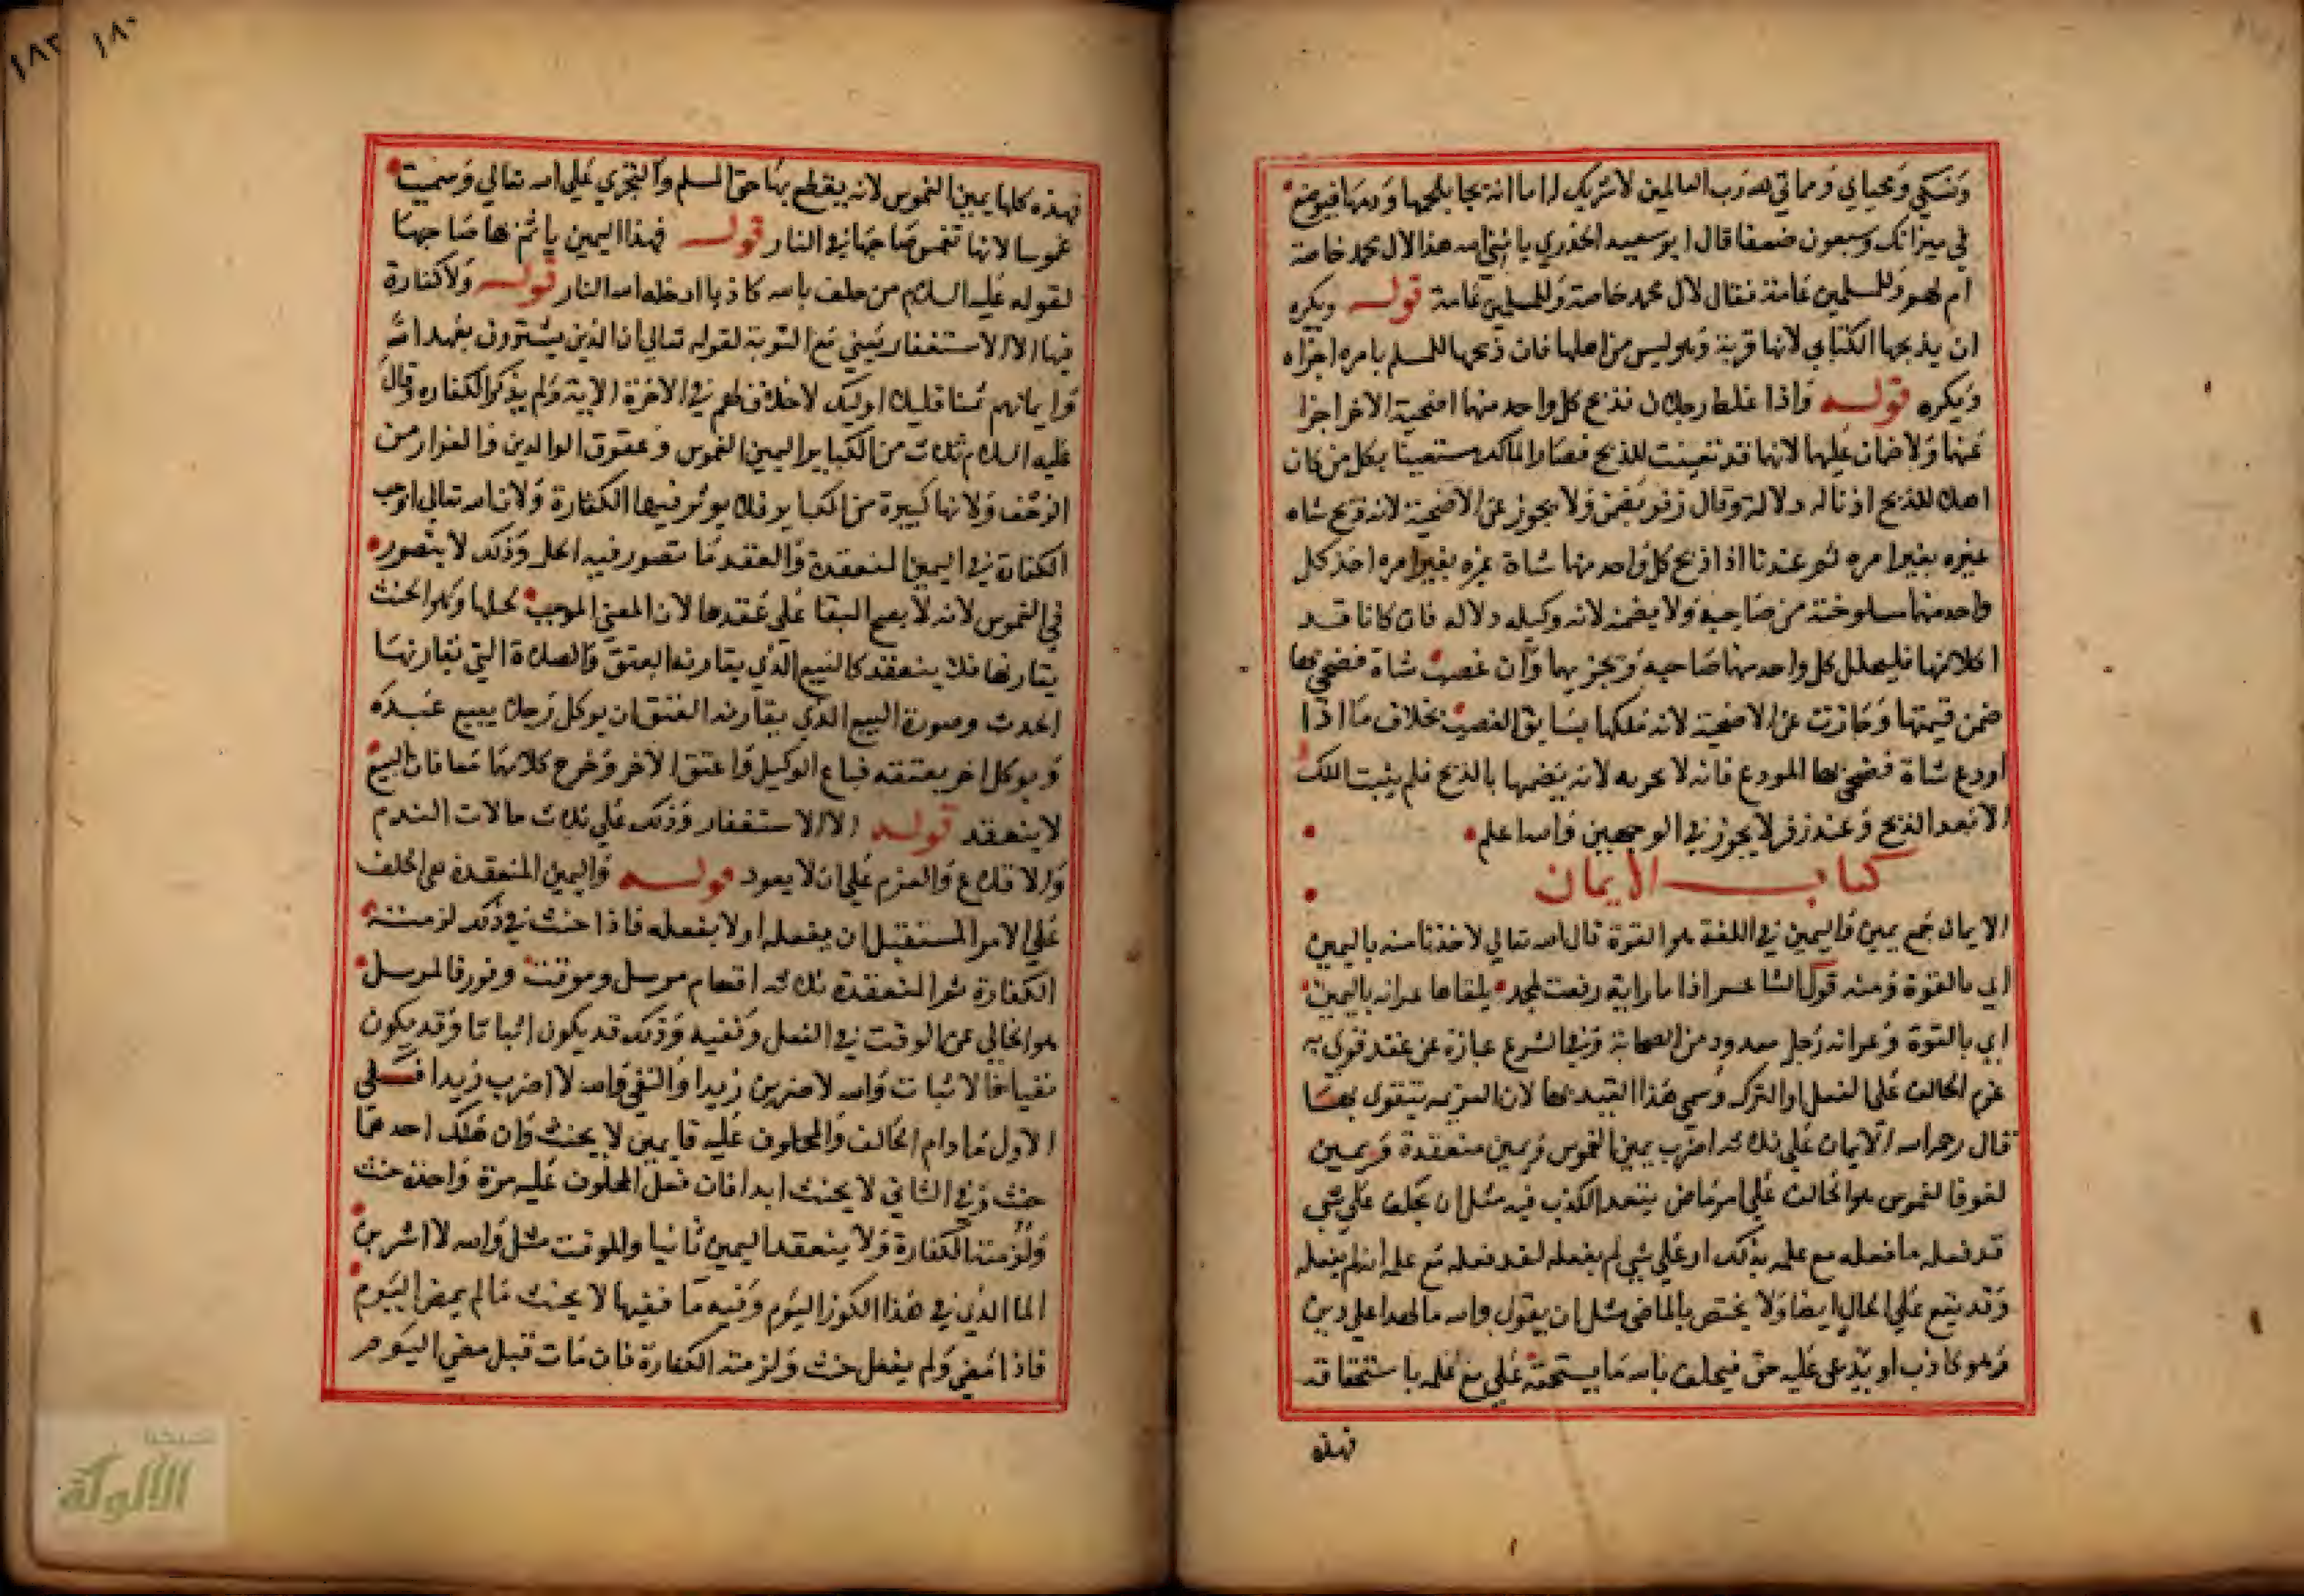 ونسكي ومحياي ومماتي لله رب العالمين لا شريك له اما انه يجا بلحمها ودمها فيوضع
في ميزانك وسبعون ضعفا قال ابو سعيد الخدري يا نبي الله هذا لال محمد خاصة
ام لهم وللمسلمين عامة فقال لال محمد خاصة وللمسلمين عامة قوله ويكره
ان يذبحها الكتابي لانها قربة وهو ليس من اهلها فان ذبحها للمسلم بامره اجزاه
ويكره قوله واذا غلط رجلان فذبح كل واحد منهما اضحية الاخر اجزا
عنهما ولا ضمان عليهما لانها قد تعينت للذبح فصار المالك مستعينا بكل من كان
اهلا للذبح اذنا له دلالة وقال زفر يضمن ولا يجوز عن الاضحية لانه ذبح شاه
غيره بغير امره ثم عندنا اذا ذبح كل واحد منهما شاة غيره بغير امره اخذ كل
واحد منهما مسلوخته من صاحبه ولا يضمنه لانه وكيله دلاله فان كانا قد
اكلا منها فليحلل كل واحد منهما صاحبه ويجزيهما وان غصب شاة فضحى بها
ضمن قيمتها وجازت عن الاضحية لانه ملكها بسابق الغصب بخلاف ما اذا
اودع شاة فضحى بها المودع فانه لا يجزيه لانه يضمنها بالذبح فلم يثبت الملك
الا بعد الذبح وعند زفر لا يجوز في الوجهين والله اعلم
كتاب الايمان
الايمان جمع يمين واليمين في اللغة هو القوة قال الله تعالى لاخذنا منه باليمين
اي بالقوة ومنه قول الشاعر اذا ما راية رفعت لمجد يلقاها عرابه باليمين
اي بالقوة وعرابه رجل معدود من الصحابة وفي الشرع عبارة عن عقد قوي به
عزم الحالف على الفعل او الترك وسمي هذا القيد بها لان العزيمه تتقوى بها
قال رحمه الله الايمان على ثلاثه اضرب يمين الغموس ويمين منعقدة ويمين
لغو فالغموس هو الحالف على امر ماض يتعمد الكذب فيه مثل ان يحلف على شي
قد فعله ما فعله مع علمه بذلك او على شي لم يفعله لقد فعله مع علمه انه لم يفعله
وقد يقع على الحال ايضا ولا يختص بالماضي مثل ان يقول والله ما لهذا علي دين
وهو كاذب او يدعى عليه حق فيحلف بالله ما يستحقه علي مع علمه باستحقاقه
فهذه
١٨٠
١٨٣
فهذه كلها يمين الغموس لانه يقطع بها حق المسلم والتجري على الله تعالى وسميت
غموسا لانها تغمس صاحبها في النار قوله فهذا اليمين ياثم بها صاحبها
لقوله عليه السلام من حلف بالله كاذبا ادخله الله النار قوله ولا كفارة
فيها الا الاستغفار يعني مع التوبة لقوله تعالى ان الذين يشترون بعهد الله
وايمانهم ثمنا قليلا اوليك لا خلاق لهم في الاخرة الاية ولم يذكر الكفاره وقال
عليه السلام ثلاث من الكباير اليمين الغموس وعقوق الوالدين والفرار من
الزحف ولانها كبيرة من الكباير فلا يوثر فيها الكفارة ولان الله تعالى اوجب
الكفارة في اليمين المنعقدة والعقد ما تصور فيه الحل وذلك لا يتصور
في الغموس لانه لا يصح البقا على عقدها لان المعنى الموجب لحلها وهو الحنث
يقارنها فلا ينعقد كالبيع الذي يقارنه العتق والصلاة التي يقارنها
الحدث وصورة البيع الذي يقارنه العتق ان يوكل رجلا يبيع عبده
ويوكل اخر بعتقه فباع الوكيل واعتق الاخر وخرج كلامهما معا فان البيع
لا ينعقد قوله الا الاستغفار وذلك على ثلاث حالات الندم
والاقلاع والعزم على ان لا يعود قوله واليمين المنعقدة هي الحلف
على الامر المستقبل ان يفعله او لا يفعله فاذا حنث في ذلك لزمته
الكفارة ثم المنعقدة ثلاثه اقسام مرسل وموقت وفور فالمرسل
هو الخالي عن الوقت في الفعل ونفيه وذلك قد يكون اثباتا وقد يكون
نفيا فالاثبات والله لاضربن زيدا والنفي والله لا اضرب زيدا ففي
الاول ما دام الحالف والمحلوف عليه قايمين لا يحنث وان هلك احدهما
حنث وفي الثاني لا يحنث ابدا فان فعل المحلوف عليه مرة واحدة حنث
ولزمته الكفارة ولا ينعقد اليمين ثانيا والموقت مثل والله لا اشربن
الما الذي في هذا الكوز اليوم وفيه ما ففيها لا يحنث ما لم يمض اليوم
فاذا مضى ولم يفعل حنث ولزمته الكفارة فان مات قبل مضي اليوم
الألوكة